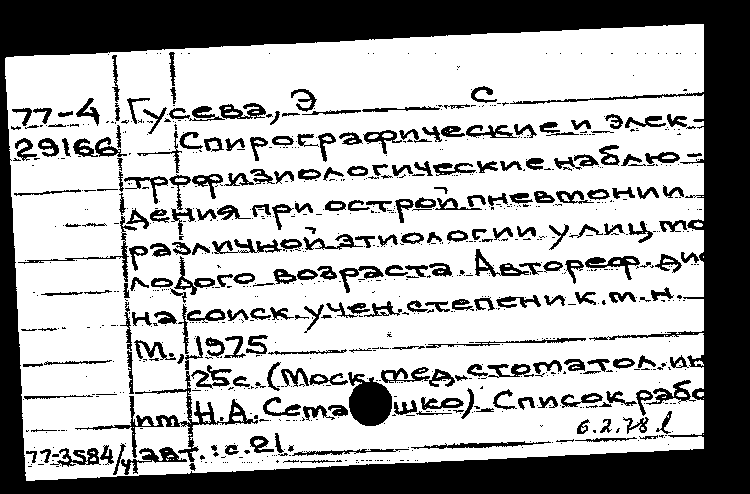 77-4 Гусева, Э С
29166 Спирографические и элек-
трофизиологические наблю-
дения при острой пневмонии
различной этиологии у лиц мо
лодого возраста. Автореф. дис
на соиск. учен. степени к.м.н.
М., 1975
25с. (Моск. мед. стоматол. ин
им. Н.А. Сема шко) Список рабо
авт.: с. 21.
6.2.78 l
77-3584/у